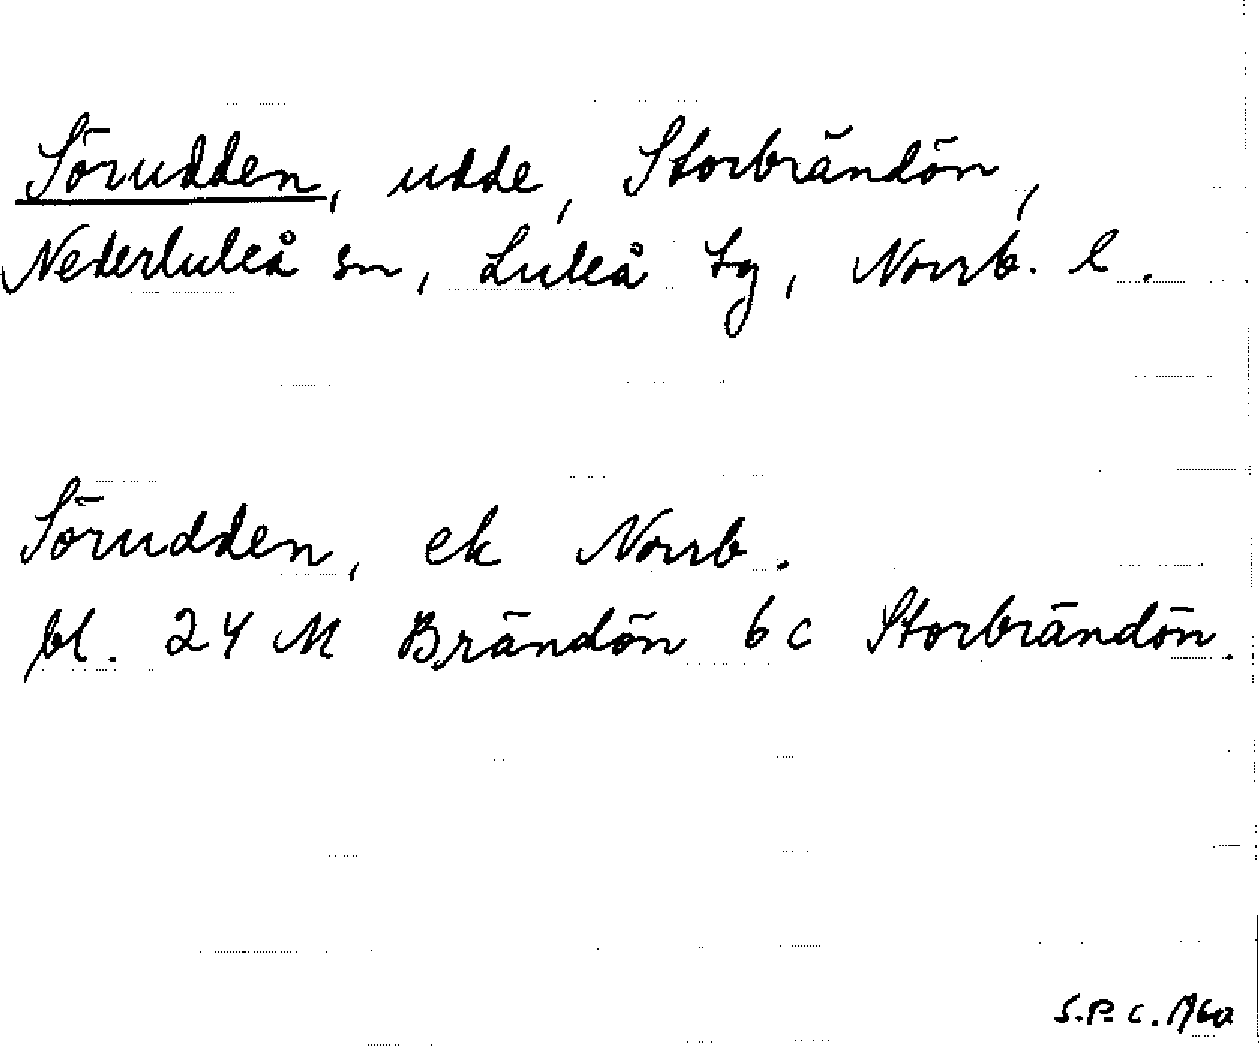 Sörudden, udde, Storbrändön,
Nederluleå sn, Luleå tg, Norrb. l.
Sörudden, ek Norrb.
bl. 24 M Brändön 6c Storbrändön.
S.P.C.